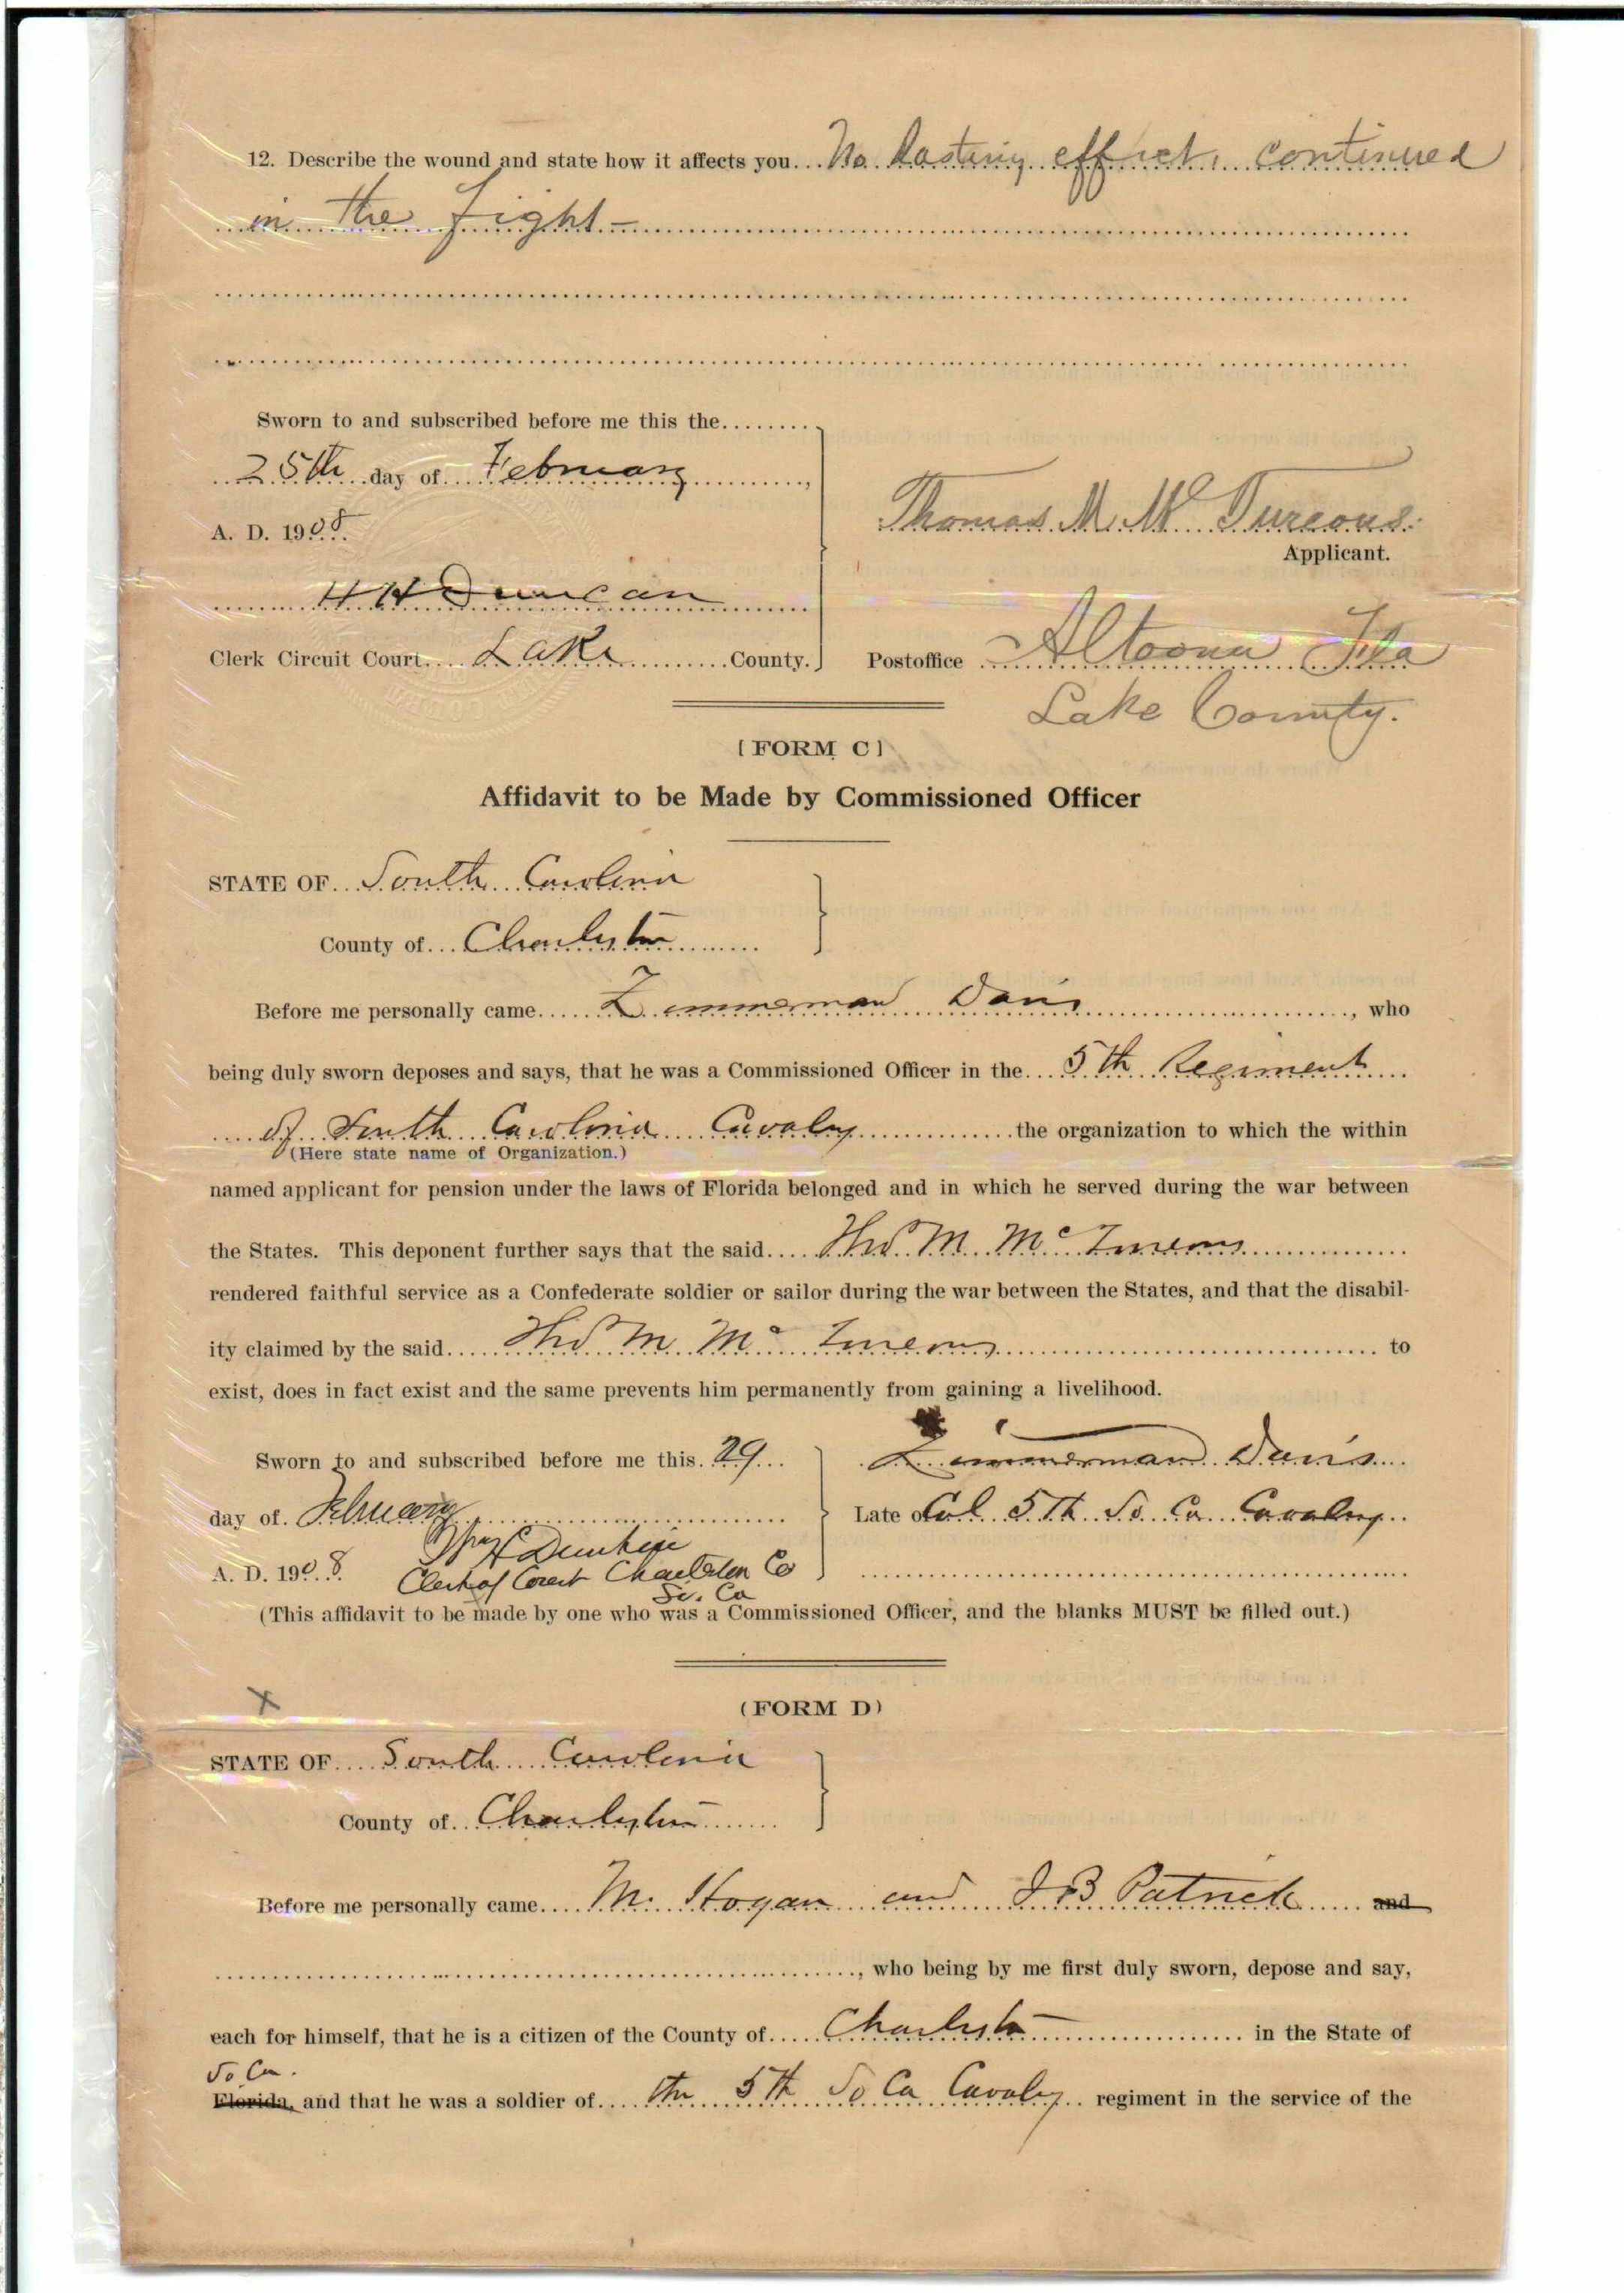 12. Describe the wound and state how it affects you... No lasting effect, continued
in the fight—
Sworn to and subscribed before me this the........
25th day of February
A. D. 1908
Thomas M. Mc
Applicant.
H H Duncan
Clerk Circuit Court.... Lake ........County.
Postoffice Altoona Fla
Lake County.
[FORM C]
Affidavit to be Made by Commissioned Officer
STATE OF... South Carolina
County of... Charleston
Before me personally came...... Zimmerman Davis ......, who
being duly sworn deposes and says, that he was a Commissioned Officer in the.... 5th Regiment
of South Carolina Cavalry ......the organization to which the within
(Here state name of Organization.)
named applicant for pension under the laws of Florida belonged and in which he served during the war between
the States. This deponent further says that the said..... Thos M. Mc
rendered faithful service as a Confederate soldier or sailor during the war between the States, and that the disabil-
ity claimed by the said..... Thos M. Mc ...... to
exist, does in fact exist and the same prevents him permanently from gaining a livelihood.
Sworn to and subscribed before me this. 29...
Zimmerman Davis
day of. February
Late of Col 5th So Ca Cavalry
A. D. 1908
Clerk of Court Charleston Co
So. Ca
(This affidavit to be made by one who was a Commissioned Officer, and the blanks MUST be filled out.)
X
(FORM D)
STATE OF..... South Carolina
County of... Charleston
Before me personally came.... M. Hogan and J B Patrick ...... and
......, who being by me first duly sworn, depose and say,
each for himself, that he is a citizen of the County of..... Charleston ...... in the State of
So Ca.
Florida, and that he was a soldier of.... the 5th So Ca Cavalry .. regiment in the service of the